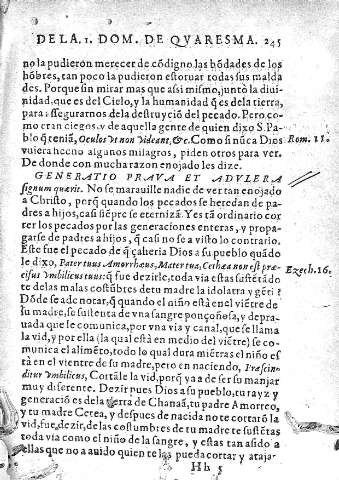 DE LA. 1. DOM. DE QVARESMA. 245
no la pudieron merecer de cōdigno las bōdades de los
hōbres, tan poco la pudieron estoruar todas sus malda
des. Porque sin mirar mas que assi mismo, juntò la diui-
nidad, que es del Cielo, y la humanidad q̄ es de la tierra,
para assegurarnos de la destruyciō del pecado. Pero co-
mo eran ciegos, y de aquella gente de quien dixo S. Pa-
blo q̄ teniā, Oculos vt non videant, &c. Como si nūca Dios
Rom. 11.
vuiera hecho algunos milagros, piden otros para ver.
De donde con mucha razon enojado les dize.
GENERATIO PRAVA ET ADVLERA
signum quærit. No se marauille nadie de ver tan enojado
a Christo, porq̄ quando los pecados se heredan de pa-
dres a hijos, casi siēpre se eternizā. Y es tā ordinario cor-
rer los pecados por las generaciones enteras, y propa-
garse de padres a hijos, q̄ casi no se a visto lo contrario.
Este fue el pecado de q̄ çaheria Dios a su pueblo quādo
le dixo, Pater tuus Amorrhæus, Mater tua, Cethæa non est præ-
Ezech. 16.
cisus vmbilicus tuus: q̄ fue dezirle, toda via estas sustētādo
te de las malas costūbres de tu madre la idolatra y gētil?
Dōde se a de notar, q̄ quando el niño està en el viētre de
su madre, se sustenta de vna sangre ponçoñosa, y depra-
uada que le comunica, por vna via y canal, que se llama
la vid, y por ella (la qual està en medio del viētre) se co-
munica el alimēto, todo lo qual dura miētras el niño es
tà en el vientre de su madre, pero en naciendo, Præscin-
ditur vmbilicus, Cortāle la vid, porq̄ ya a de ser su manjar
muy diferente. Dezir pues Dios a su pueblo, tu rayz y
generaciō es de la tierra de Chanaā, tu padre Amorreo,
y tu madre Cetea, y despues de nacida no te cortarō la
vid, fue, dezir, de las costūbres de tu madre te sustētas
toda via como el niño de la sangre, y estas tan asido a
ellas que no a auido quien te las pueda cortar y atajar
Hh 5